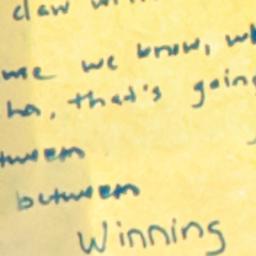 claw
me we know, wh
ha, that's going
tween
between
Winning